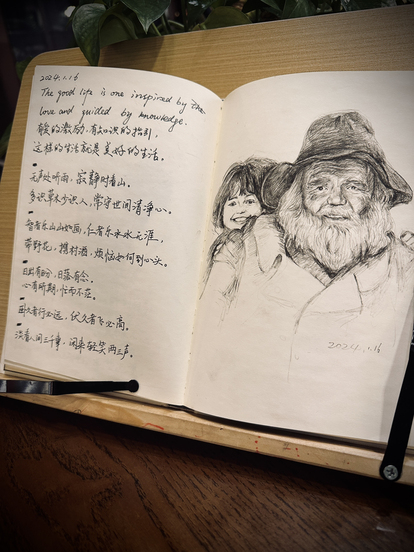 2024.1.16
The good life is one inspired by the
love and guided by knowledge.
有爱的激励,有知识的指引,
这样的生活就是美好的生活。
无声处听雨,寂静时看山。
多识草木少识人,常守世间清净心。
智者乐山山如画,仁者乐水水无涯,
带野花,携村酒,烦恼如何到心头。
日出有盼,日落有念。
心有所期,忙而不茫。
致远者行必远,伏久者飞必高。
淡看人间三千事,闲来轻笑两三声。
2024.1.16